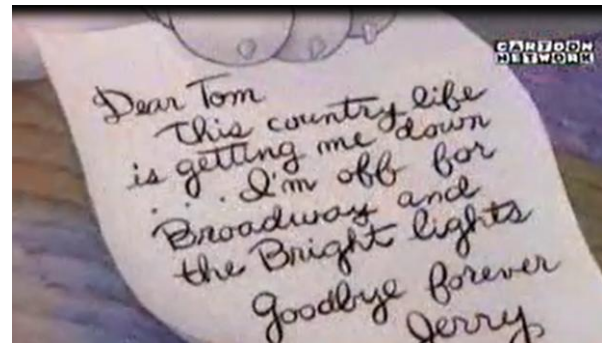 CARTOON
NETWORK
Dear Tom
This country life
is getting me down
. . . I'm off for
Broadway and
the Bright lights
Goodbye forever
Jerry